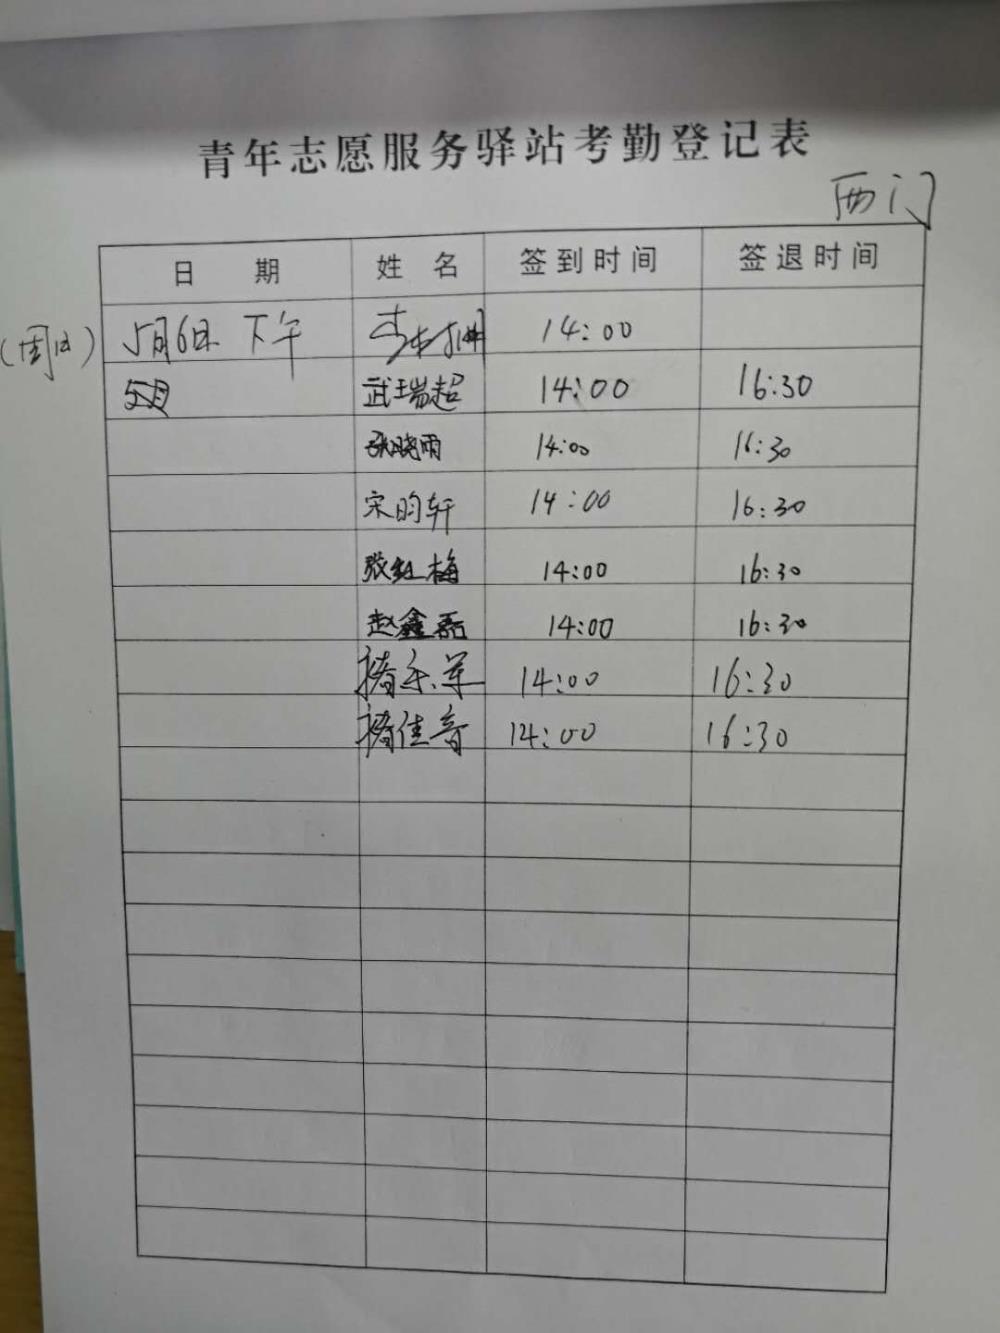 青年志愿服务驿站考勤登记表
西门
日 期 姓 名 签到时间 签退时间
5月6日 下午 14:00
武瑞超 14:00 16:30
张晓雨 14:00 16:30
宋昀轩 14:00 16:30
张红梅 14:00 16:30
赵鑫磊 14:00 16:30
14:00 16:30
佳音 14:00 16:30